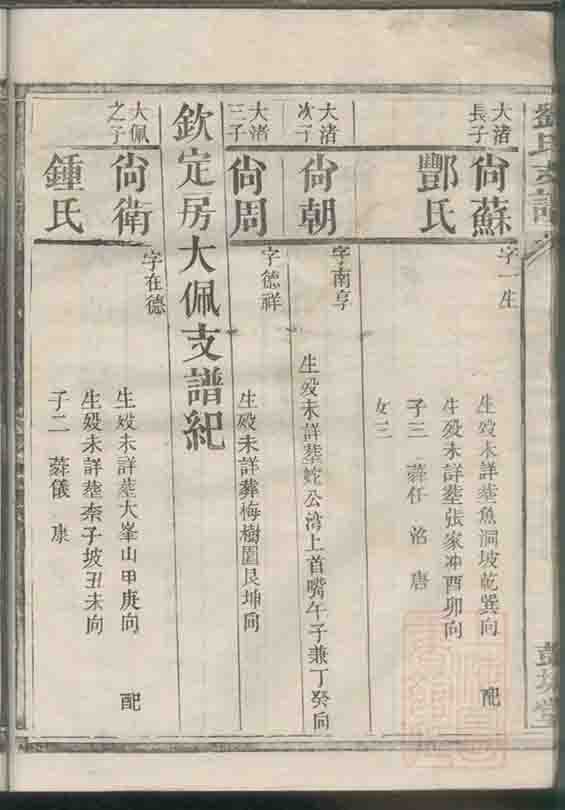 大渚
長子
尚蘇
字一生
生殁未詳塟魚洞坡乾巽向 配
酆氏
生殁未詳塟張家冲酉卯向
子三 蕣任 洺 唐
女三
大渚
次子
尚朝
字南亨
生殁未詳塟蛇公湾上首嘴午子兼丁癸向
大渚
三子
尚周
字德祥
生殁未詳葬梅樹園艮坤向
欽定房大佩支譜紀
大佩
之子
尚衛
字在德
生殁未詳塟大峯山甲庚向 配
鍾氏
生殁未詳塟柰子坡丑未向
子二 蕣儀 康